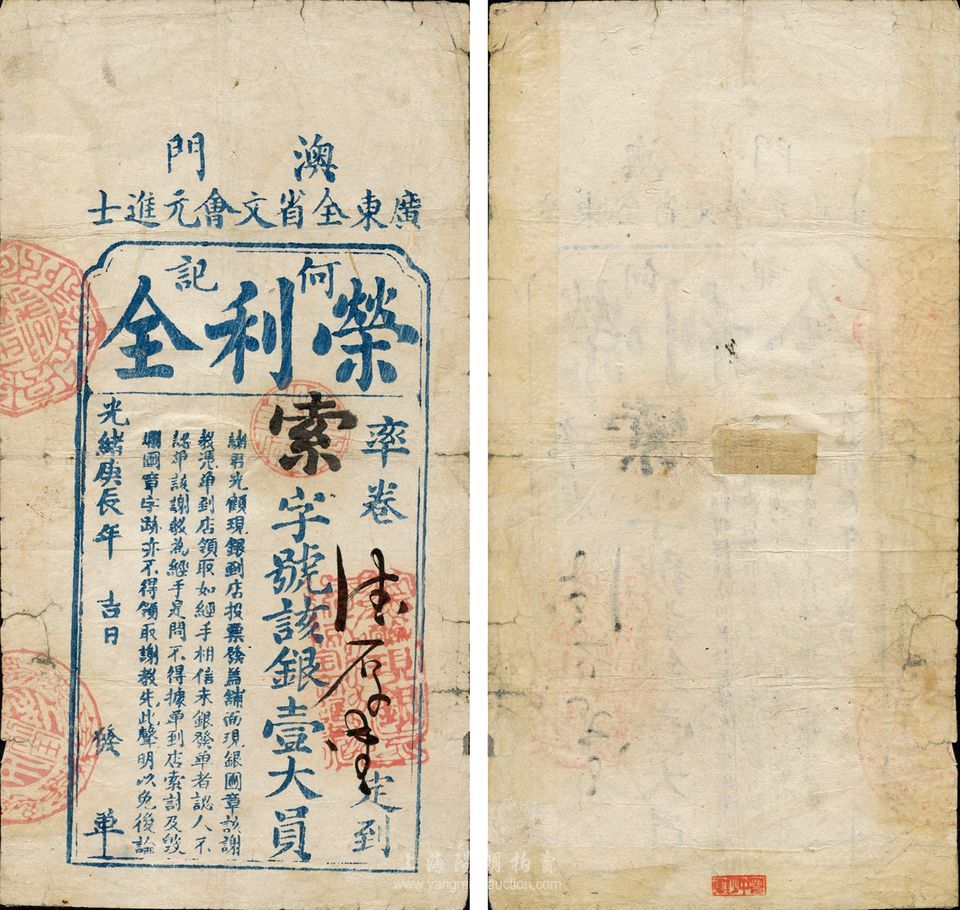 澳門
廣東全省文會元進士
何記
榮利全
率卷
定到
索字號該銀壹大員
諸君光顧現銀到店投票發蓋鋪面現銀圖章該謝
教憑單到店領取如經手相信未銀發單者認人不
認單該謝教為經手是問不得據單到店索討及毀
爛圖章字跡亦不得領取謝教先此聲明以免後論
光緒庚辰年 吉日 發單
上海陽明拍賣
www.yangmingauction.com